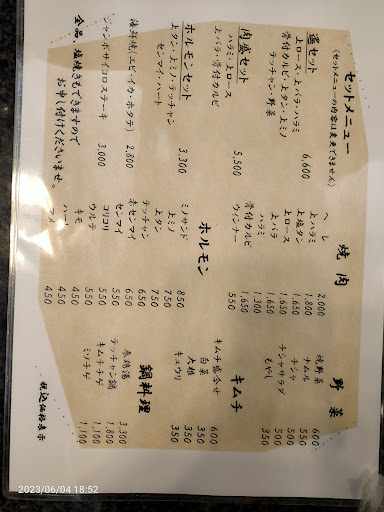 セットメニュー
(セットメニューの内容は変更できません)
遥セット 6,600
上ロース・上バラ・ハラミ
骨付カルビ・上タン・上ミノ
テッチャン・野菜
肉盛セット 5,500
ハラミ・上ロース
上バラ・骨付カルビ
ホルモンセット 3,300
上タン・上ミノ・テッチャン
センマイ・ハート
海鮮焼(エビ・イカ・ホタテ) 2,800
ジャンボサイコロステーキ 3,000
全品 塩焼きもできますので
お申し付けくださいませ。
焼肉
ヘレ 2,000
上ハラミ 1,800
上塩タン 1,650
上ロース 1,650
上バラ 1,650
ハラミ 1,300
骨付カルビ 1,650
ウィンナー 550
ホルモン
ミノサンド 850
上ミノ 750
上タン 750
テッチャン 650
赤センマイ 650
センマイ 550
コリコリ 550
ウルテ 550
キモ 450
ハート 450
マメ 450
野菜
焼野菜 600
ナムル 550
チシャ 500
チシャサラダ 550
もやし 350
キムチ
キムチ盛合せ 600
白菜 350
大根 350
キュウリ 350
鍋料理
参鶏湯 3,300
テッチャン鍋 1,800
キムチチゲ 1,100
ミソチゲ 1,100
税込価格表示
2023/06/04 18:52